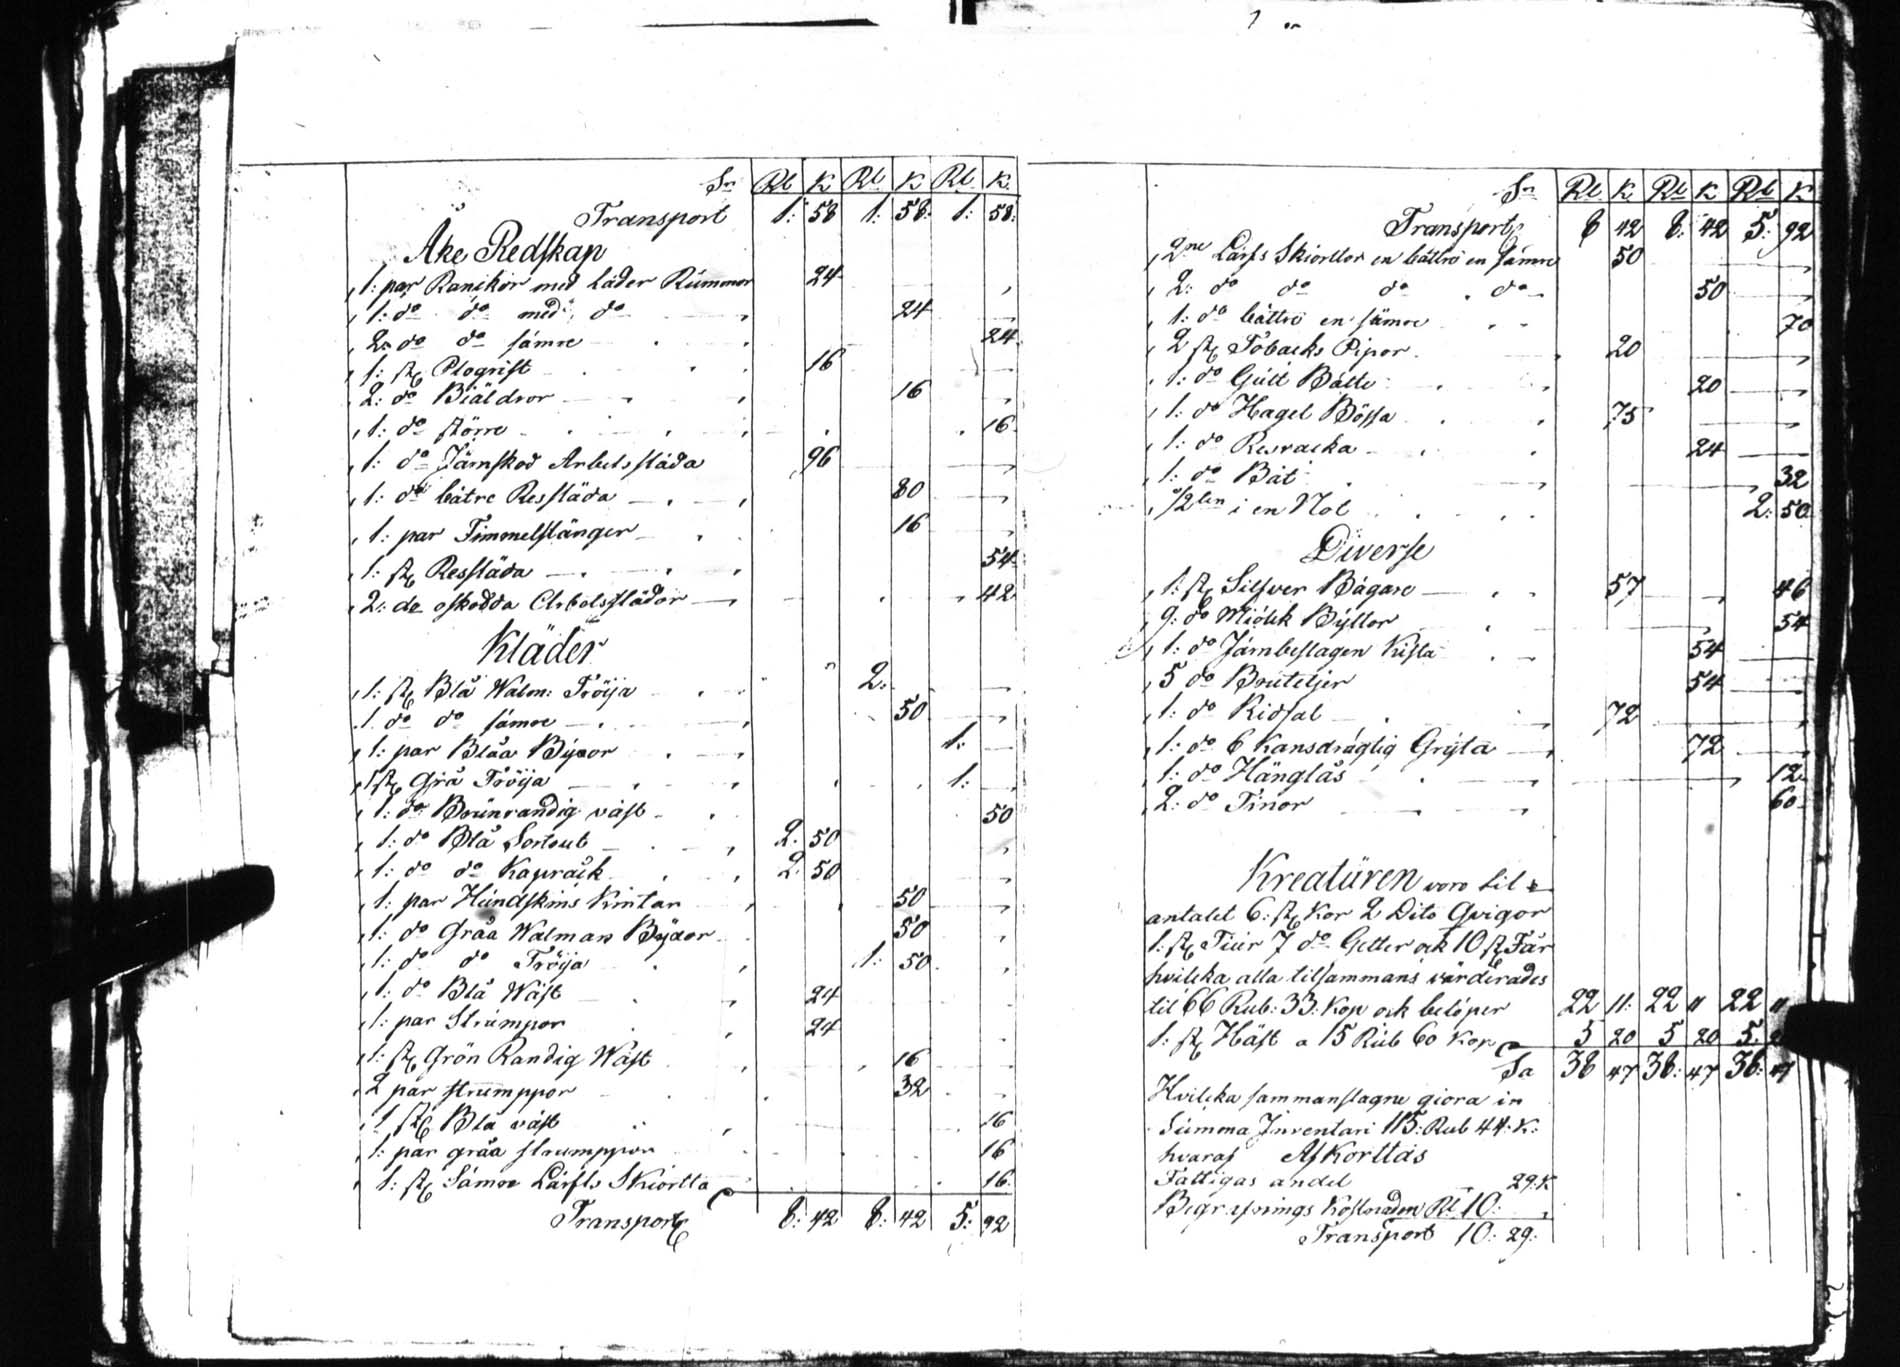 Sn Rl K Rl K Rl K
Transport 1: 58 1: 58: 1: 58:
Åke Redskap
1: par Ranckor med Läder Rümmor 24
1: do do med do 24
2: do do sämre 24
1: st Plogrist 16
2: do Biäldror 16
1: do större 16
1: do Järnskod Arbetssläda 96
1: do bätre Ressläda 80
1: par Timmelstänger 16
1: st Ressläda 54
2: do oskodda Arbetsslädor 42
Kläder
1: st Blå Walm: Tröija 2:
1 do do sämre 50
1: par Blåa Byxor 1:
1 st Grå Tröija 1:
1: do Brünrandig väst 50
1: do Blå Sortout 2. 50
1: do do Kapråck 2. 50
1: par Hündskins Kintar 50
1: do Gråa Walmans Byxor 50
1: do do Tröija 1: 50
1: do Blå Wäst 24
1: par Strümpor 24
1: st Grön Randig Wäst 16
2 par strumppor 32
1 st Blå väst 16
1: par gråa strumppor 16
1: st Sämre Lärfts Skiortta 16
Transport 8: 42 8: 42 5: 92
Sn Rl K Rl K Rl K
Transport 8 42 8: 42 5: 92
2ne Lärfts Skiorttor en bättre en sämre 50
2: do do do do 50
1: do bättre en sämre 70
2 st Tobacks Pipor 20
1: do Gütt Bätte 20
1: do Hagel Bössa 75
1: do Resvacka 24
1: do Båt 32
1/2 ten i en Not 2: 50
Diverse
1: st Silfver Bägare 57 46
9: do Miölck Byttor 54
1: do Järnbeslagen Kista 54
5 do Brutetjer 54
1: do Ridsal 72
1: do 6 Kansdrägtig Gryta 72
1: do Hänglås 12
2: do Tinor 60
Kreatüren voro til
antalet 6: st Kor 2 Dito Qvigor
1: st Tiür 7 do Getter ock 10 st Får
hvilcka alla tilsammans värderades
til 66 Rub: 33: Kop ock belöper 22 11: 22 11 22 11
1: st Häst a 15 Rüb 60 Kop 5 20 5 20 5
Sa 38 47 38: 47 38: 47
Hvilcka sammanslagne giora in
Summa Inventari 115: Rub 44: K:
hvaraf Afkorttas
Fattigas andel 29: K
Begrafnings Kostnaden Rl 10:
Transport 10: 29: